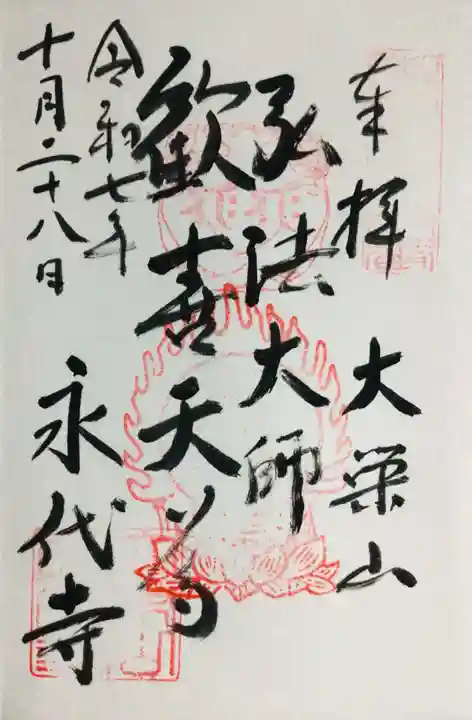 奉拝
大栄山
弘法大師
歓喜天尊
永代寺
令和七年
十月二十八日